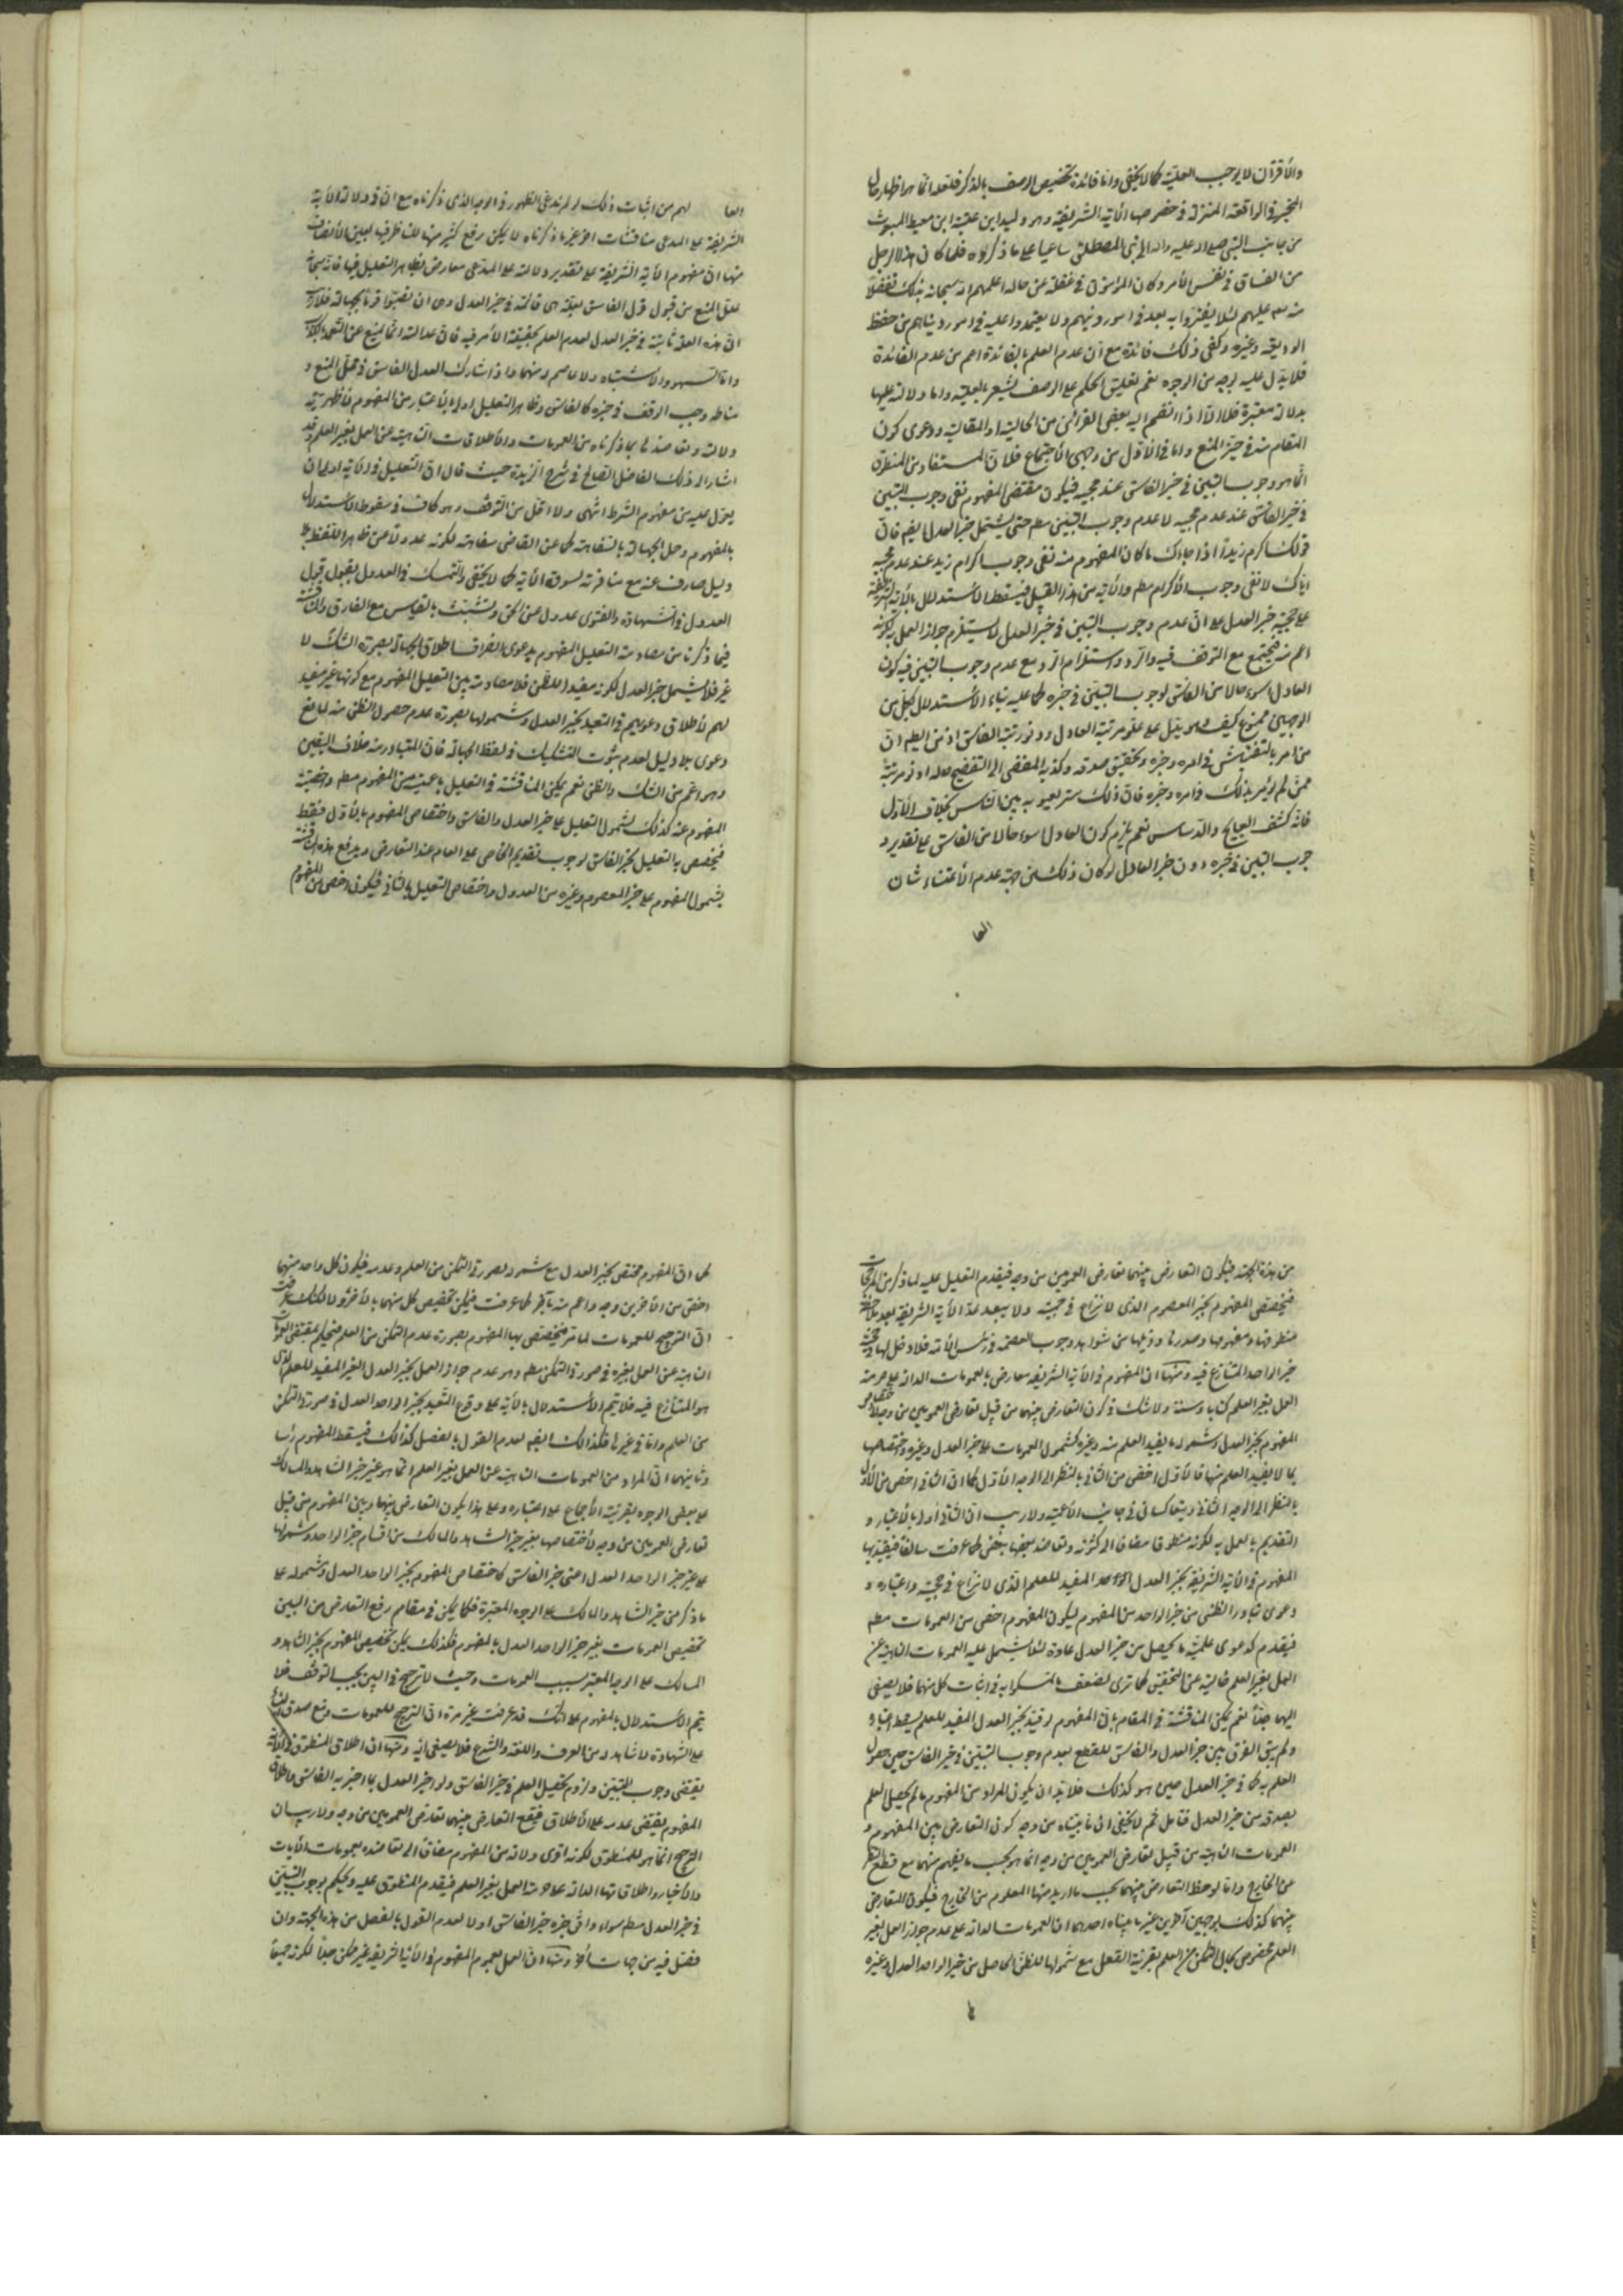 والأقرآن لا يوجب العلية كما لا يخفى واما فائدة تخصيص الوصف بالذكر فلعله انما هو اظهار حال
المخبر في الواقعة المنزلة في خصوصها الآية الشريفة وهو وليد ابن عقبة ابن معيط المبعوث
من جانب النبي صلى الله عليه واله الى بنى المصطلق ساعيا على ما ذكروه فلما كان هذا الرجل
من الفساق في نفس الأمر وكان المؤمنون في غفلة عن حاله اعلمهم الله سبحانه بذلك تفضلا
منه عليهم لئلا يغتروا به بعد في امور دينهم ولا يعتمدوا عليه في امور دنياهم من حفظ
الوديعة وغيره وكفى ذلك فائدة مع ان عدم العلم بالفائدة اعم من عدم الفائدة
فلا يدل عليه بوجه من الوجوه نعم تعليق الحكم على الوصف يشعر بالعلية واما دلالته عليها
بدلالة معتبرة فلا الا اذا انضم اليه بعض القرائن من الحالية او المقالية ودعوى كون
المقام منه في حيز المنع واما في الأول من وجهى الأحتجاج فلان المستفاد من المنطوق
انما هو وجوب التبين في خبر الفاسق عند مجيئه فيكون مقتضى المفهوم نفى وجوب التبين
في خبر الفاسق عند عدم مجيئه لا عدم وجوب التبين مطم حتى يشتمل خبر العدل ايضم فان
قولك اكرم زيدا اذا جاءك ما كان المفهوم منه نفى وجوب اكرام زيد عند عدم مجيئه
اياك لا نفى وجوب الأكرام مطم والآية من هذا القبيل فيسقط الأستدلال بالآية الشريفة
على حجية خبر العدل على ان عدم وجوب التبين في خبر العدل لا يستلزم جواز العمل به لكونه
اعم منه فيجتمع مع التوقف فيه والرد واستلزام الرد مع عدم وجوب التبين فيه كون
العادل اسوء حالا من الفاسق لوجوب التبين في خبره كما عليه بناء الأستدلال بكل من
الوجهين ممنوع كيف وهو يدل على علو مرتبة العادل ودنو رتبة الفاسق اذ من البين ان
من امر بالتفتيش في امره وخبره وتحقيق صدقه وكذبه المفضى الى التفضيح حاله ادون مرتبة
ممن لم يؤمر بذلك في امره وخبره فان ذلك ستر لعيوبه بين الناس بخلاف الأول
فانه كشف القبايح والدسايس نعم يلزم كون العادل اسوء حالا من الفاسق على تقدير و
جوب التبين في خبره دون خبر العادل لو كان ذلك من جهة عدم الأعتناء بشان
العا
العا لهم من اثبات ذلك لو لم ندعى الظهور في الوجه الذى ذكرناه مع ان في دلالة الآية
الشريفة على المدعى مناقشات اخر غير ما ذكرناه لا يمكن رفع كثير منها
منها ان مفهوم الآية الشريفة على تقدير دلالته على المدعى معارض بظاهر التعليل فيها فانه سبحانه
علل المنع من قبول قول الفاسق بعلة هى قائمة في خبر العدل وهى ان تصيبوا قوما بجهالة فلا ريب
ان هذه العلة ثابتة في خبر العدل لعدم العلم بحقيقة الأمر فيه فان عدالته انما تمنع عن التعمد بالكذب
واما السهو والأشتباه فلا عاصم منهما واذا شارك العدل الفاسق في علة المنع و
مناطه وجب الوقف في خبره كالفاسق وظاهر التعليل اولى بالأعتبار من المفهوم لأظهرية
دلالته وتعاضده بما ذكرناه من العمومات والأطلاقات الناهية عن العمل بغير العلم وقد
اشار الى ذلك الفاضل الصالح في شرح الزبدة حيث قال ان التعليل في الآية اولى ان
يعول عليه من مفهوم الشرط انتهى ولا اقل من التوقف وهو كاف في سقوط الأستدلال
بالمفهوم وحمل الجهالة بالسفاهة كما عن القاضى سفاهة لكونه عدولا عن ظاهر اللفظ بلا
دليل صارف عنه مع منافرته لسوق الآية كما لا يخفى والتمسك في العدول بقبول قول
العدول في الشهادة والفتوى عدول عن الحق وتشبث بالقياس مع الفارق والمناقشة
فيما ذكرنا من مصادمة التعليل المفهوم بدعوى انصراف اطلاق الجهالة بصورة الشك لا
غير فلا يشمل خبر العدل لكونه مفيدا للظن فلا مصادمة بين التعليل المفهوم مع كونها غير مفيد
لهم لأطلاق دعويهم في التعبد بخبر العدل وشمولها بصورة عدم حصول الظن منه لمانع
دعوى بلا دليل لعدم ثبوت التشكيك في لفظ الجهالة فان المتبادر منه خلاف اليقين
وهو اعم من الشك والظن نعم يمكن المناقشة في التعليل باعمية من المفهوم مطم واخصية
المفهوم عنه كذلك لشمول التعليل على خبر العدل والفاسق واختصاص المفهوم بالأول فقط
فيخصص به التعليل بخبر الفاسق لوجوب تقديم الخاص على العام عند التعارض ويدفع هذه المناقشة
بشمول المفهوم على خبر المعصوم وغيره من العدول واختصاص التعليل بالثانى فيكون اخص من المفهوم
من هذه الجهة فيكون التعارض بينهما تعارض العمومين من وجه فيقدم التعليل عليه لما ذكر من المرجحات
فيختص المفهوم بخبر المعصوم الذى لا نزاع في حجيته ولا يبعد عد الآية الشريفة بعد ملاحظة
منطوقها ومفهومها وصدرها وذيلها من شواهد وجوب العصمة في رئيس الأمة فلا دخل لها في حجية
خبر الواحد المتنازع فيه ومنها ان المفهوم في الآية الشريفة معارض بالعمومات الدالة على حرمة
العمل بغير العلم كتابا وسنة ولا شك في كون التعارض بينهما من قبيل تعارض العمومين من وجه لأختصاص
المفهوم بخبر العدل وشموله ما يفيد العلم منه وغيره كشمول العمومات على خبر العدل وغيره واختصاصها
بما لا يفيد العلم منها فالأول اخص من الثانى بالنظر الى الوجه الأول كما ان الثانى اخص من الأول
بالنظر الى الوجه الثانى ويتعاكسان في جانب الأعمية ولا ريب ان الثانى اولى بالأعتبار و
التقديم بالعمل به لكونه منطوقا مضافا الى كثرته وتعاضد بعضها ببعض كما عرفت سالفا فيقيد بها
المفهوم في الآية الشريفة بخبر العدل الواحد المفيد للعلم الذى لا نزاع في حجيته واعتباره و
دعوى تبادر الظنى من خبر الواحد من المفهوم ليكون المفهوم اخص من العمومات مطم
فيقدم كدعوى علمية ما يحصل من خبر العدل عادة لئلا يشمل عليه العمومات الناهية عن
العمل بغير العلم خالية عن التحقيق كما ترى لضعف ما تمسكوا به في اثبات كل منهما فلا يصغى
اليهما جدا نعم يمكن المناقشة في المقام بان المفهوم لو قيد بخبر العدل المفيد للعلم يسقط اعتباره
ولم يبق الفرق بين خبر العدل والفاسق للقطع بعدم وجوب التبين في خبر الفاسق حين حصول
العلم به كما في خبر العدل حين هو كذلك فلا بد ان يكون المراد من المفهوم ما لم يحصل العلم
بصدقه من خبر العدل فتامل ثم لا يخفى ان ما بيناه من وجه كون التعارض بين المفهوم و
العمومات الناهية من قبيل تعارض العمومين من وجه انما هو بحسب ما يفهم منهما مع قطع النظر
عن الخارج واما لو لوحظ التعارض بينهما بحسب ما اريد منها المعلوم من الخارج فيكون التعارض
بينهما كذلك بوجهين آخرين غير ما بيناه احدهما ان العمومات الدالة على عدم جواز العمل بغير
العلم مخصوص بحال التمكن من العلم بقرينة العقل مع شمولها للظن الحاصل من خبر الواحد العدل وغيره
كما
كما ان المفهوم مختص بخبر العدل مع شموله لصورتى التمكن من العلم وعدمه فيكون كل واحد منهما
اخص من الآخر من وجه واعم منه بآخر كما عرفت فيمكن تخصيص كل منهما بالآخر الا انك عرفت
ان الترجيح للعمومات لما مر فيختص بها المفهوم بصورة عدم التمكن من العلم فيحكم بمقتضى العمومات
الناهية عن العمل بغيره في صورة التمكن مطم وهو عدم جواز العمل بخبر العدل الغير المفيد للعلم الذى
هو المتنازع فيه فلا يتم الأستدلال بالآية على وقوع التعبد بخبر الواحد العدل في صورة التمكن
من العلم واما في غيرها فكذلك ايضم لعدم القول بالفصل كذلك فيسقط المفهوم رأسا
وثانيهما ان المراد من العمومات الناهية عن العمل بغير العلم انما هو غير خبر الشاهد والمالك
على بعض الوجوه بقرينة الأجماع على اعتباره وعلى هذا يكون التعارض بينهما وبين المفهوم من قبيل
تعارض العمومين من وجه لأختصاصها بغير خبر الشاهد والمالك من اقسام خبر الواحد وشمولها
على غير خبر الواحد العدل اعنى خبر الفاسق كاختصاص المفهوم بخبر الواحد العدل وشموله على
ما ذكر من خبر الشاهد والمالك على الوجوه المعتبرة فكما يمكن في مقام رفع التعارض من البين
تخصيص العمومات بغير خبر الواحد العدل بالمفهوم فكذلك يمكن تخصيص المفهوم بخبر الشاهد و
المالك على الوجه المعتبر بسبب العمومات وحيث لا ترجيح في البين يجب التوقف فلا
يتم الأستدلال بالمفهوم على انك قد عرفت غير مرة ان الترجيح للعمومات ومنع صدق النبأ
على الشهادة لا شاهد له من العرف واللغة والشرع فلا يصغى اليه ومنها ان اطلاق المنطوق في الآية
يقتضى وجوب التبين ولزوم تحصيل العلم في خبر الفاسق ولو اخبر العدل بما اخبر به الفاسق واطلاق
المفهوم يقتضى عدمه على الأطلاق فيقع التعارض بينهما تعارض العمومين من وجه ولا ريب ان
الترجيح انما هو للمنطوق لكونه اقوى دلالة من المفهوم مضافا الى تعاضده بعمومات الآيات
والأخبار واطلاقاتها الدالة على حرمة العمل بغير العلم فيقدم المنطوق عليه ويحكم بوجوب التبين
في خبر العدل مطم سواء وافق خبره خبر الفاسق او لا لعدم القول بالفصل من هذه الجهة وان
فصل فيه من جهات اخر ومنها ان العمل بعموم المفهوم في الآية الشريفة غير ممكن جدا لكونه جميعا